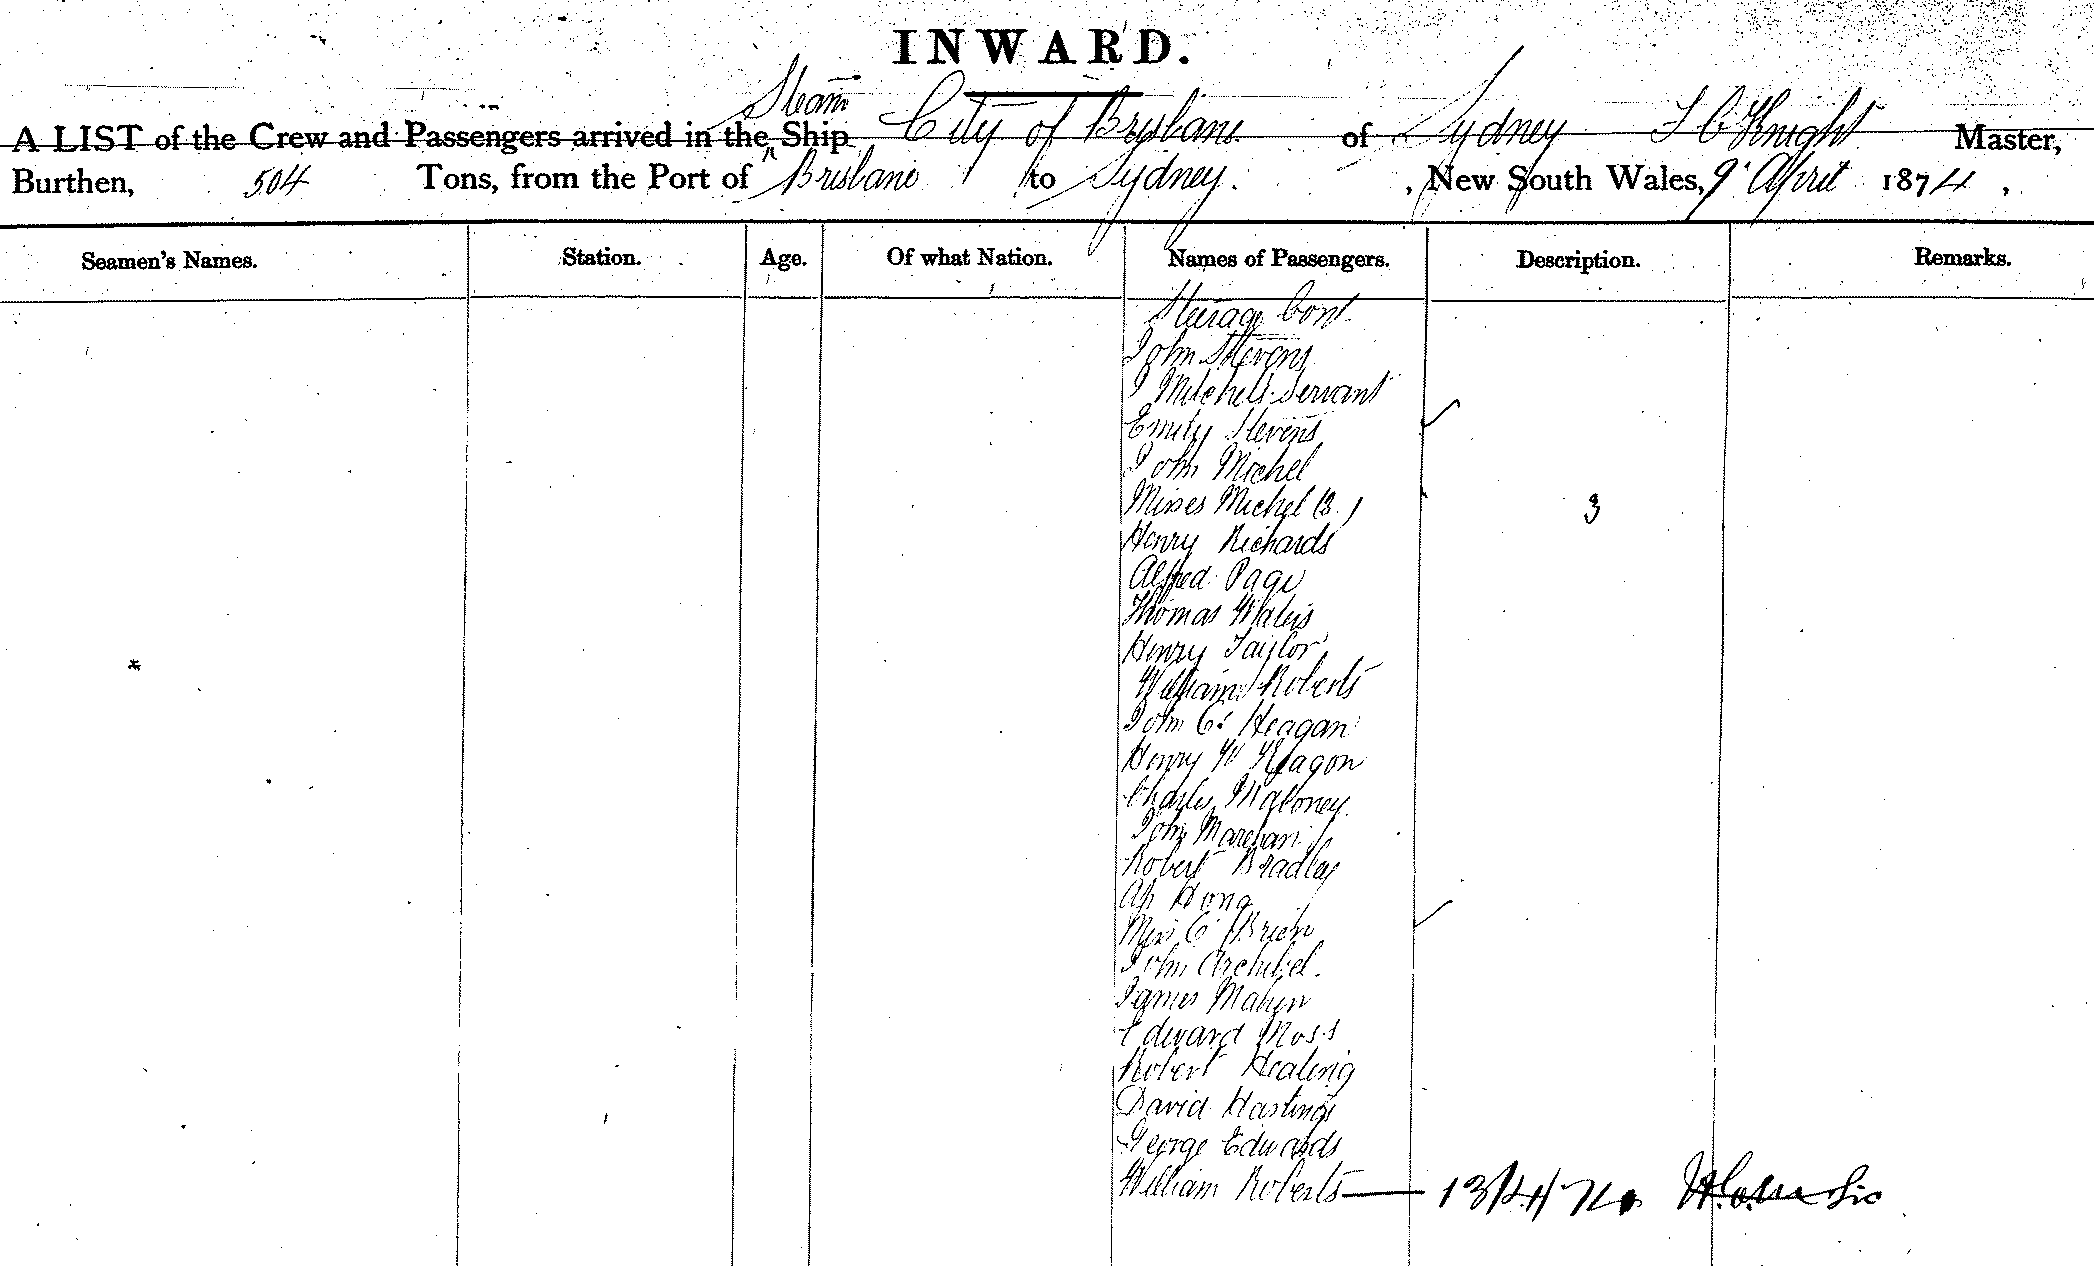 INWARD.
Steam
A LIST of the Crew and Passengers arrived in the Ship City of Brisbane of Sydney Knight Master,
Burthen, 504 Tons, from the Port of Brisbane to Sydney. , New South Wales, 9 April 1874 ,
Seamen's Names. Station. Age. Of what Nation. Names of Passengers. Description. Remarks.
Steerage Cont
John Stevens
Mitchell Servant
Emily Stevens
John Michel
Misses Michel (3.) 3
Henry Richards
Alfred Page
Thomas
Henry Taylor
William Roberts
John C. Heagan
Henry W
Charles Maloney
John
Robert Bradley
Ah Hong
John
James
Edward Moss
Robert Healing
David Hastings
George Edwards
William Roberts 13/4/74